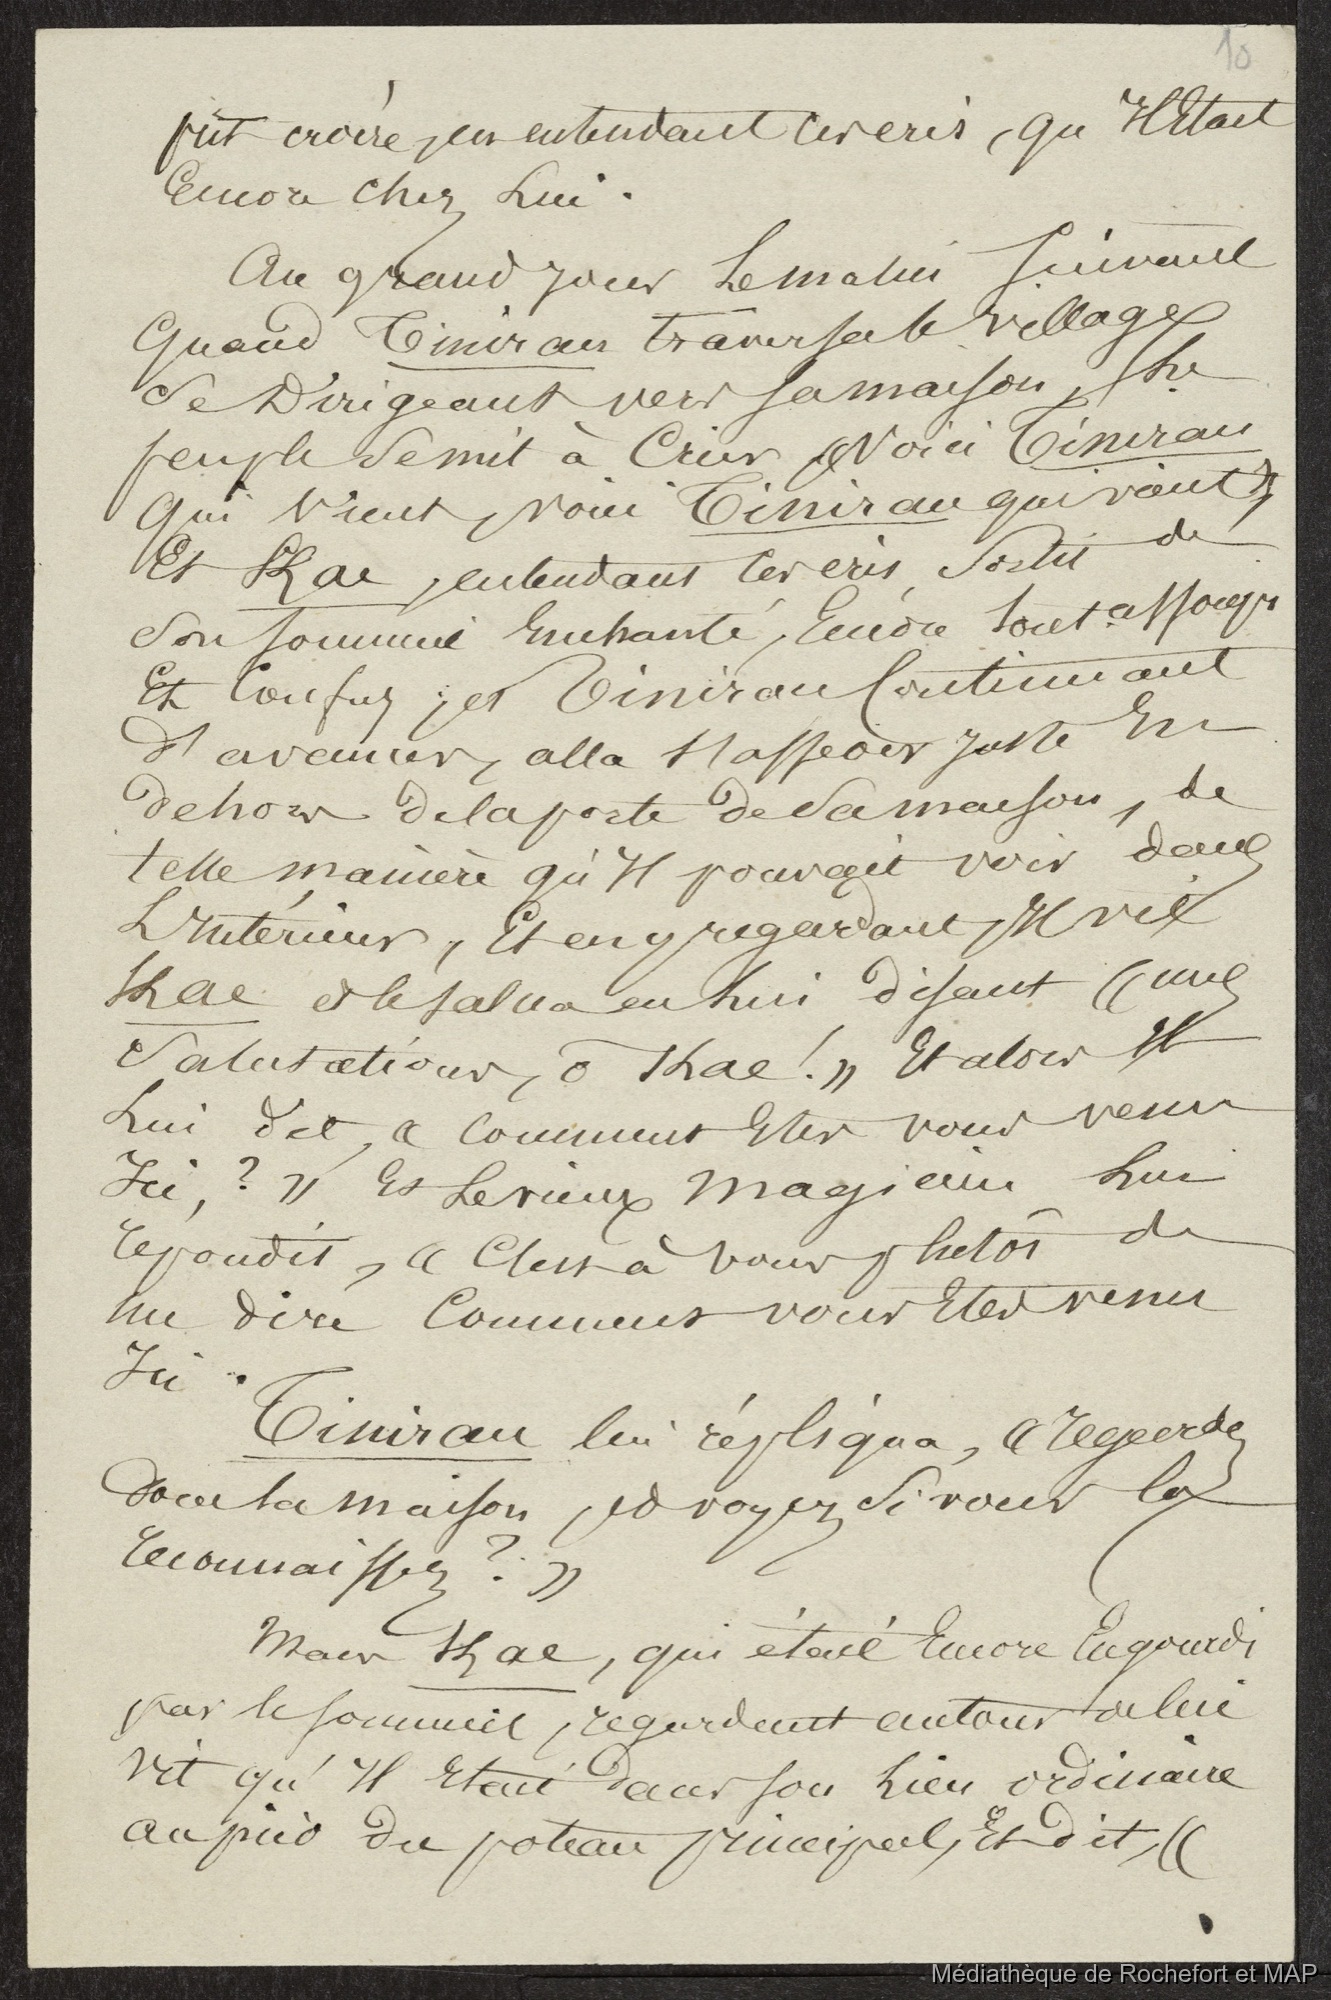 10
pût croire, en entendant ces cris, qu'Il Etait
Encore chez Lui.
Au grand jour Le matin suivant
Quand Tinirau traversa le village
Se Dirigeant vers sa maison, Le
peuple Se mit à Crier « Voici Tinirau
qui vient, voici Tinirau qui vient »
Et Kae, entendant ces cris Sortit de
Son sommeil Enchanté, Encore tout assoupi
Et Confus, et Tinirau Continuant
d'avancer, alla s'asseoir juste En
dehors de la porte de Sa maison, de
telle manière qu'Il pouvait voir dans
L'Intérieur, Et en y regardant, Il vit
Kae et le salua en Lui disant « mes
Salutations, ô Kae! » Et alors Il
Lui dit, « Comment Etes vous venu
Ici,? » Et Le vieux Magicien Lui
répondit, « C'est à vous plutôt de
me dire Comment vous Etes venu
Ici.
Tinirau lui répliqua, « regardez
donc la maison, et voyez Si vous la
reconnaissez? »
Mais Kae, qui était Encore Engourdi
par le sommeil, regardant autour de lui
vit qu'Il Etait dans son Lieu ordinaire
au pied du poteau principal, Et dit, «
Médiathèque de Rochefort et MAP